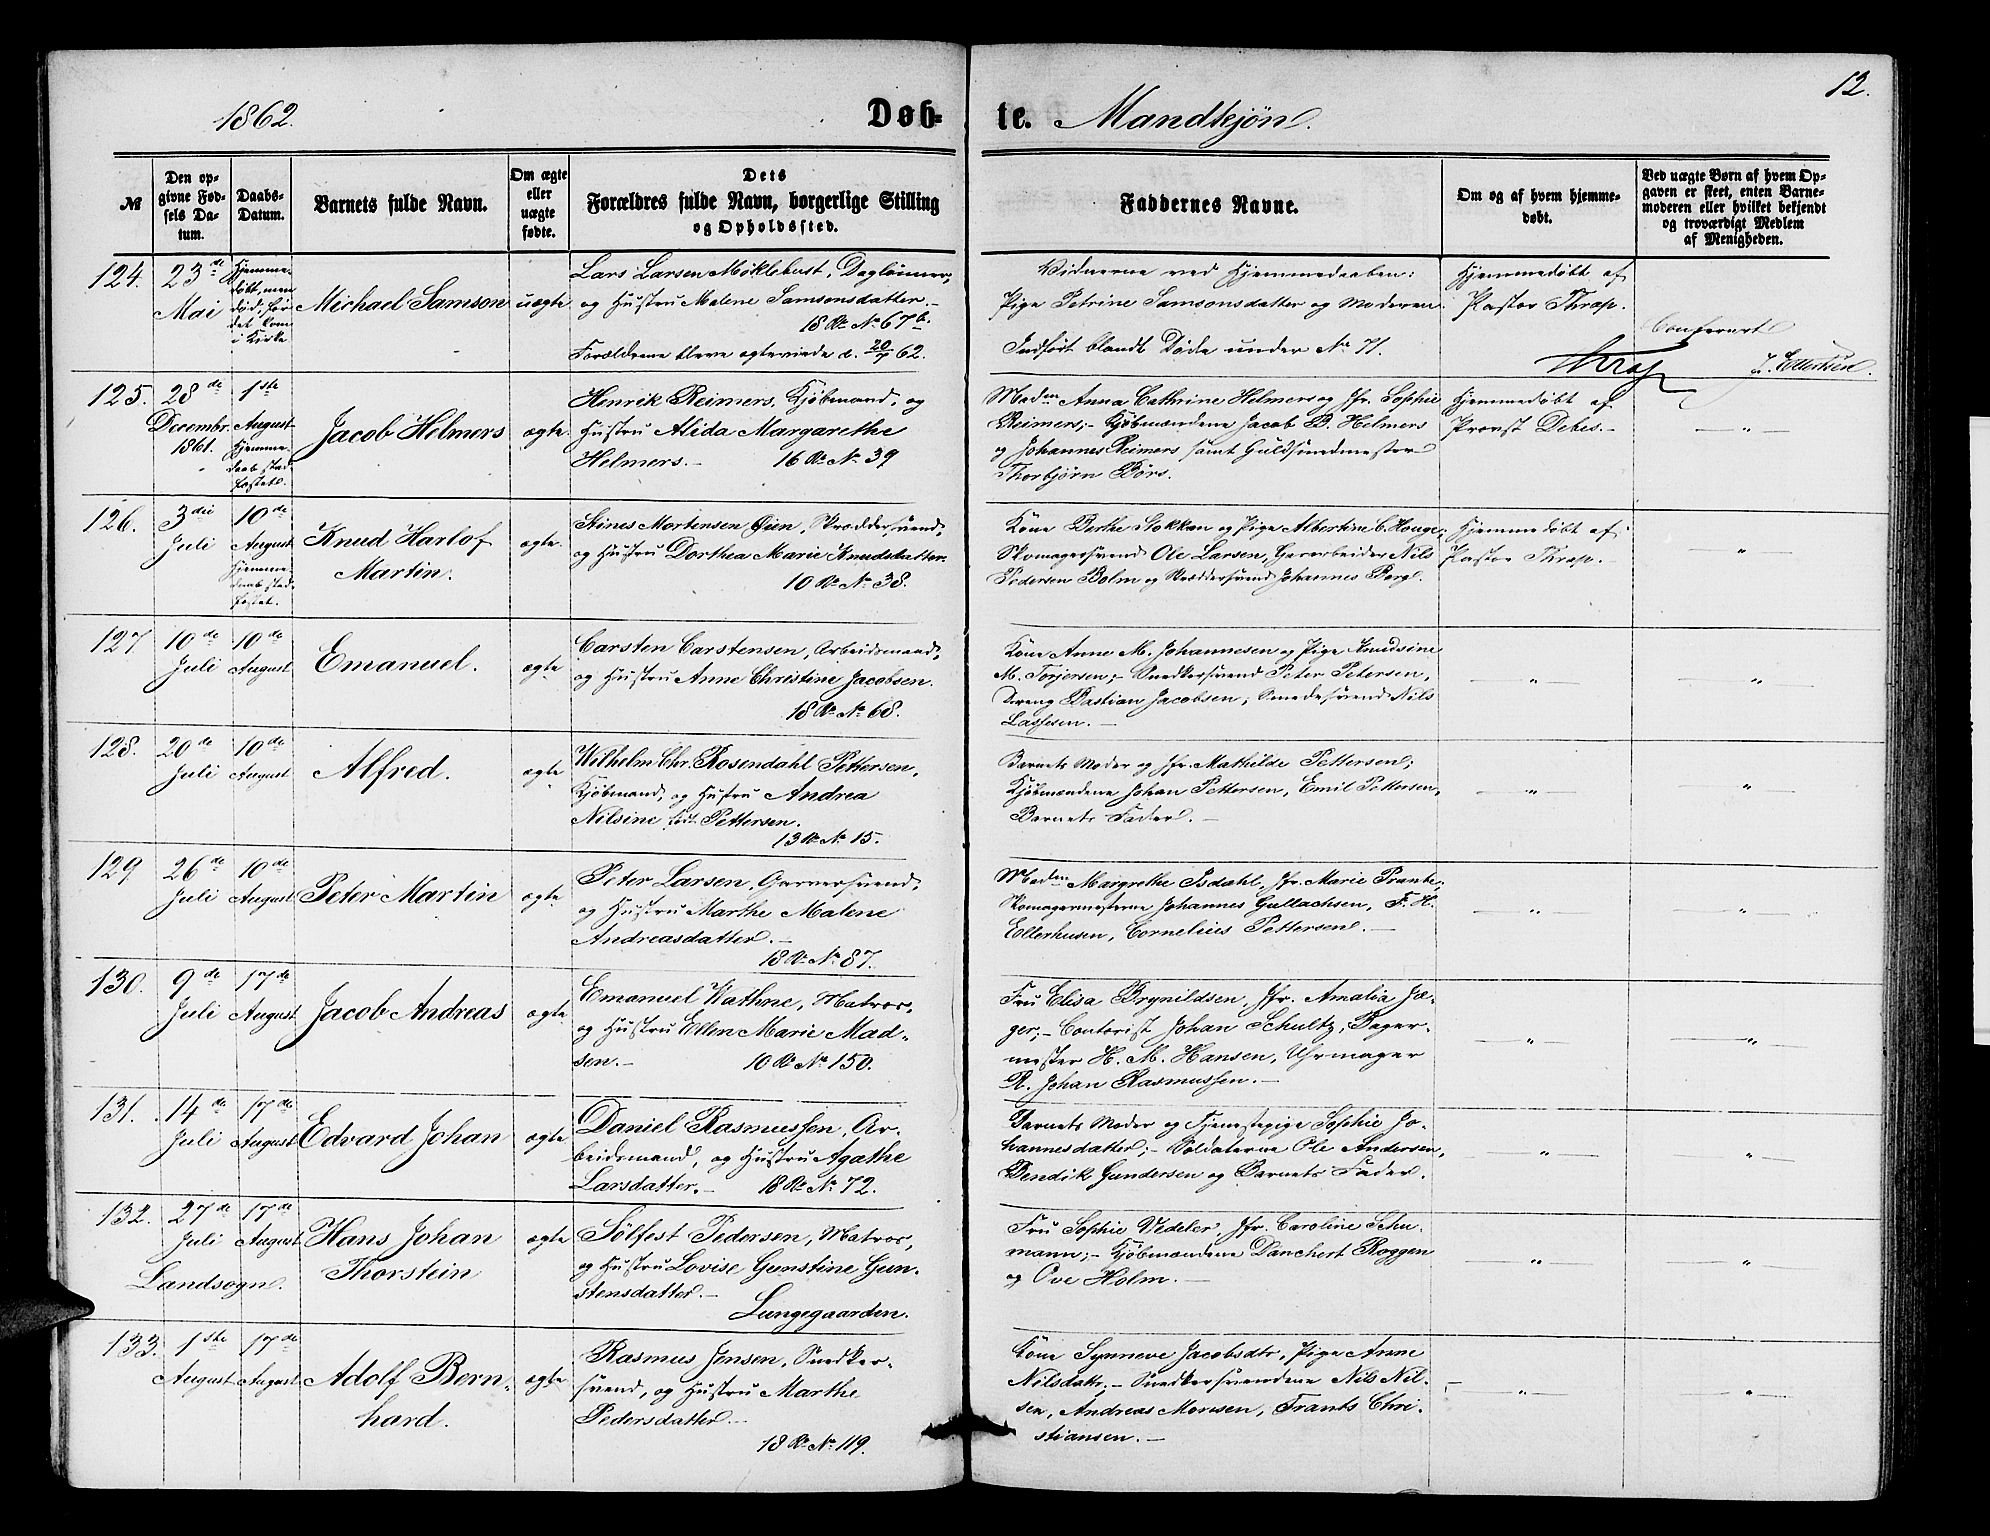 1862.
Døb-
te. Mandkjøn.
12.
№
Den op-
givne Fød-
sels Da-
tum.
Daabs-
Datum.
Barnets fulde Navn.
Om ægte
eller
uægte
fødte.
Dets
Forældres fulde Navn, borgerlige Stilling
og Opholdssted.
Faddernes Navne.
Om og af hvem hjemme-
døbt.
Ved uægte Børn af hvem Op-
gaven er skeet, enten Barne-
moderen eller hvilket bekjendt
og troværdigt Medlem
af Menigheden.
124.
23de
Mai
Hjemme-
døbt, men
død, før
det kom
i Kirke
Michael Samson
uægte
Lars Larsen Møklebust, Daglønner,
og Hustru Malene Samsonsdatter.-
18 R. No 67b.
Forældrene bleve ægteviede d. 20/7 62.
Vidnerne ved Hjemmedaaben:
Pige Petrine Samsonsdatter og Moderen
Indført blandt Døde under No 71.
Hjemmedøbt af
Pastor Thrap.
Confereret
Thrap
J. Ellerhusen.
125.
28de
Decembr.
1861.
1ste
August
Hjemme-
daab stad-
fæstet.
Jacob Helmers
ægte
Henrik Reimers, Kjøbmand, og
Hustru Alida Margarethe
Helmers.- 16 R. No 39
Madm Anna Cathrine Helmers og Jfr. Sophie
Reimers;- Kjøbmændene Jacob B. Helmers
og Johannes Reimers samt Guldsmedmester
Thorbjørn Børs.
Hjemmedøbt af
Provst Debes.-
-"-
126.
3die
Juli
10de
August
Hjemme-
daab stad-
fæstet.
Knud Harlof
Martin.
ægte
Stines Mortensen Øien, Skræddersvend,
og Hustru Dorthea Marie Knudsdatter.
10 R. No 38.
Kone Berthe Stokkan og Pige Albertine C. Houge;
Skomagersvend Ole Larsen, Havearbeider Nils
Pedersen Bolm og Skræddersvend Johannes Berg.
Hjemmedøbt af
Pastor Thrap.-
"
127
10de
Juli
10de
August
Emanuel.
ægte
Carsten Carstensen, Arbeidsmand,
og Hustru Anne Christine Jacobsen.
18 R. No 68.
Kone Anne M. Johannesen og Pige Knudsine
M. Torjersen;- Snedkersvend Peter Petersen,
Dreng Bastian Jacobsen, Smedesvend Nils
Lassesen.-
-"-
-"-
128.
20de
Juli
10de
August
Alfred.
ægte
Wilhelm Chr. Rosendahl Pettersen,
Kjøbmand, og Hustru Andrea
Nilsine født Pettersen.
13 R. No 15.
Barnets Moder og Jfr. Mathilde Pettersen;
Kjøbmændene Johan Pettersen, Emil Pettersen,
Barnets Fader.-
-"-
-"-
129
26de
Juli
10de
August
Peter Martin
ægte
Peter Larsen, Garversvend,
og Hustru Marthe Malene
Andreasdatter.-
18 R. No 87.
Madm Margrethe Isdahl, Jfr. Marie Prante;
Skomagermesterne Johannes Gullachsen, F. H.
Ellerhusen, Cornelius Pettersen.-
-"-
-"-
130.
9de
Juli
17de
August
Jacob Andreas
ægte
Emanuel Wathne, Matros,
og Hustru Ellen Marie Mad-
sen.- 10 R. No 150.
Fru Elisa Brynildsen, Jfr. Amalia Jæ-
ger;- Contorist Johan Schultz, Bager-
mester H. M. Hansen, Uhrmager
R. Johan Rasmussen.-
-"-
-"-
131.
14de
Juli
17de
August
Edvard Johan
ægte
Daniel Rasmussen, Ar-
beidsmand, og Hustru Agathe
Larsdatter.- 18 R. No 72.
Barnets Moder og Tjenestepige Sophie Jo-
hannesdatter;- Soldaterne Ole Andersen,
Bendik Gundersen og Barnets Fader.
-"-
-"-
132.
27de
Juli
17de
August
Landsogn.
Hans Johan
Thorstein
ægte
Sølfest Pedersen, Matros,
og Hustru Lovise Gunstine Gun-
stensdatter.-
Lungegaarden.
Fru Sophie Vedeler, Jfr. Caroline Schu-
mann;- Kjøbmændene Danchert Roggen
og Ove Holm.-
-"-
-"-
133.
1ste
August
17de
August
Adolf Bern-
hard.
ægte
Rasmus Jensen, Snedker-
svend, og Hustru Marthe
Pedersdatter.-
18 R. No 119.
Kone Synneve Jacobsdtr, Pige Anne
Nilsdatr;- Snedkersvendene Nils Nil-
sen, Andreas Monsen, Frants Chri-
stiansen.-
-"-
-"-